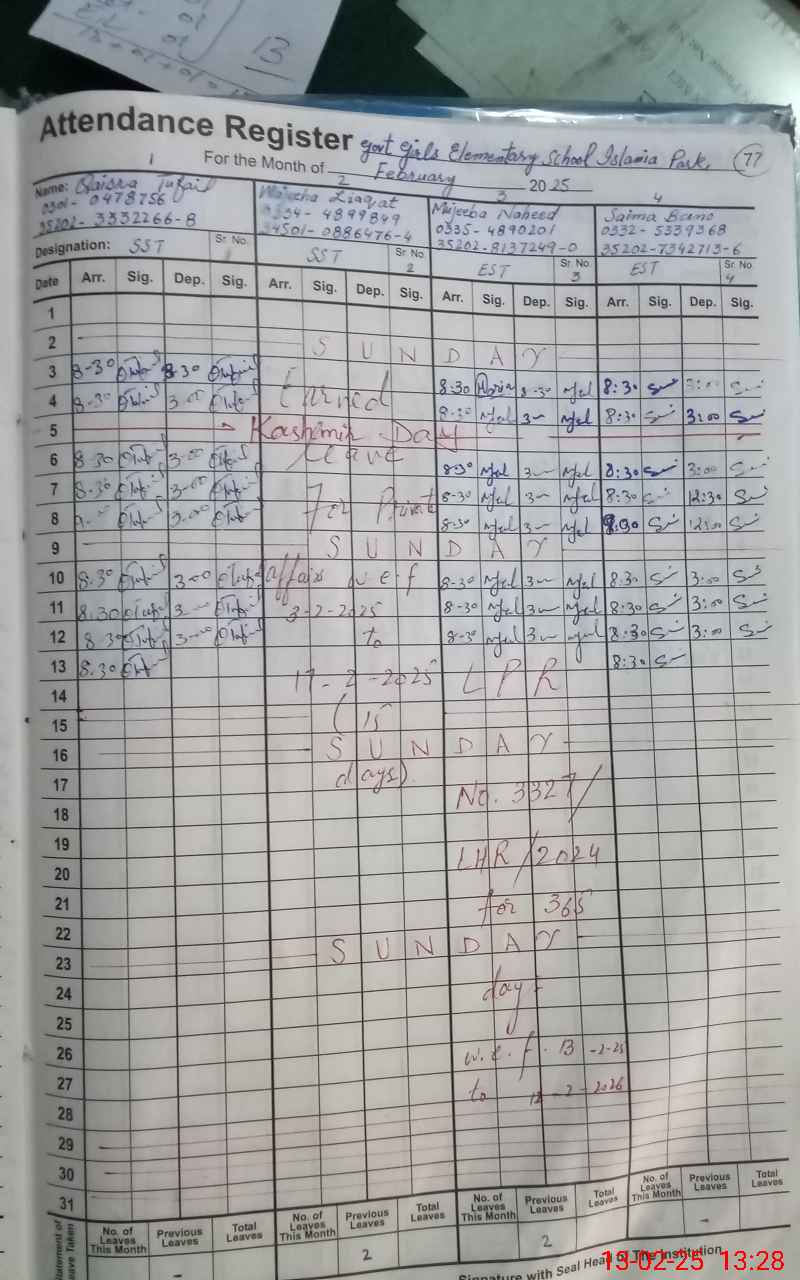 13
Attendance Register Govt Girls Elementary School Islamia Park, 77
For the Month of February 2025
1 2 3 4
Name: Qaisra Tufail Wajeeha Liaqat Mujeeba Naheed Saima Bano
0301-0478756 0334-4899849 0335-4890201 0332-5339368
35202-3332266-8 34501-0886476-4 35202-8137249-0 35202-7342713-6
Designation: SST Sr No. 1 SST Sr No. 2 EST Sr No. 3 EST Sr No. 4
Date Arr. Sig. Dep. Sig. Arr. Sig. Dep. Sig. Arr. Sig. Dep. Sig. Arr. Sig. Dep. Sig.
1
2 S U N D A Y
3 8-30 8.30 8:30 8-30 8:30 3:00
4 8-30 3-00 Earned 8-30 3- 8:30 3:00
5 Kashmir Day
6 8-30 3-00 leave 8-30 3- 8:30 3:00
7 8-30 3-00 8-30 3- 8:30 12:30
8 3-00 For Private 8-30 3- 8:30 12:00
9 S U N D A Y
10 8.30 3-00 affairs w e f 8-30 3- 8:30 3:00
11 8.30 3-00 3-2-2025 8-30 3- 8:30 3:00
12 8.30 3-00 to 8-30 3- 8:30 3:00
13 8.30 17-2-2025 L P R 8:30
14
15 (15
16 S U N D A Y
17 days). No. 3327/
18
19 LHR/2024
20
21 for 365
22
23 S U N D A Y
24 days
25
26 w.e.f. 13-2-25
27 to 12-2-2026
28
29
30
31
Statement of Leave Taken
No. of Leaves This Month Previous Leaves Total Leaves No. of Leaves This Month Previous Leaves Total Leaves No. of Leaves This Month Previous Leaves Total Leaves No. of Leaves This Month Previous Leaves Total Leaves
- 2 2 -
Signature with Seal Head Of The Institution
13-02-25 13:28